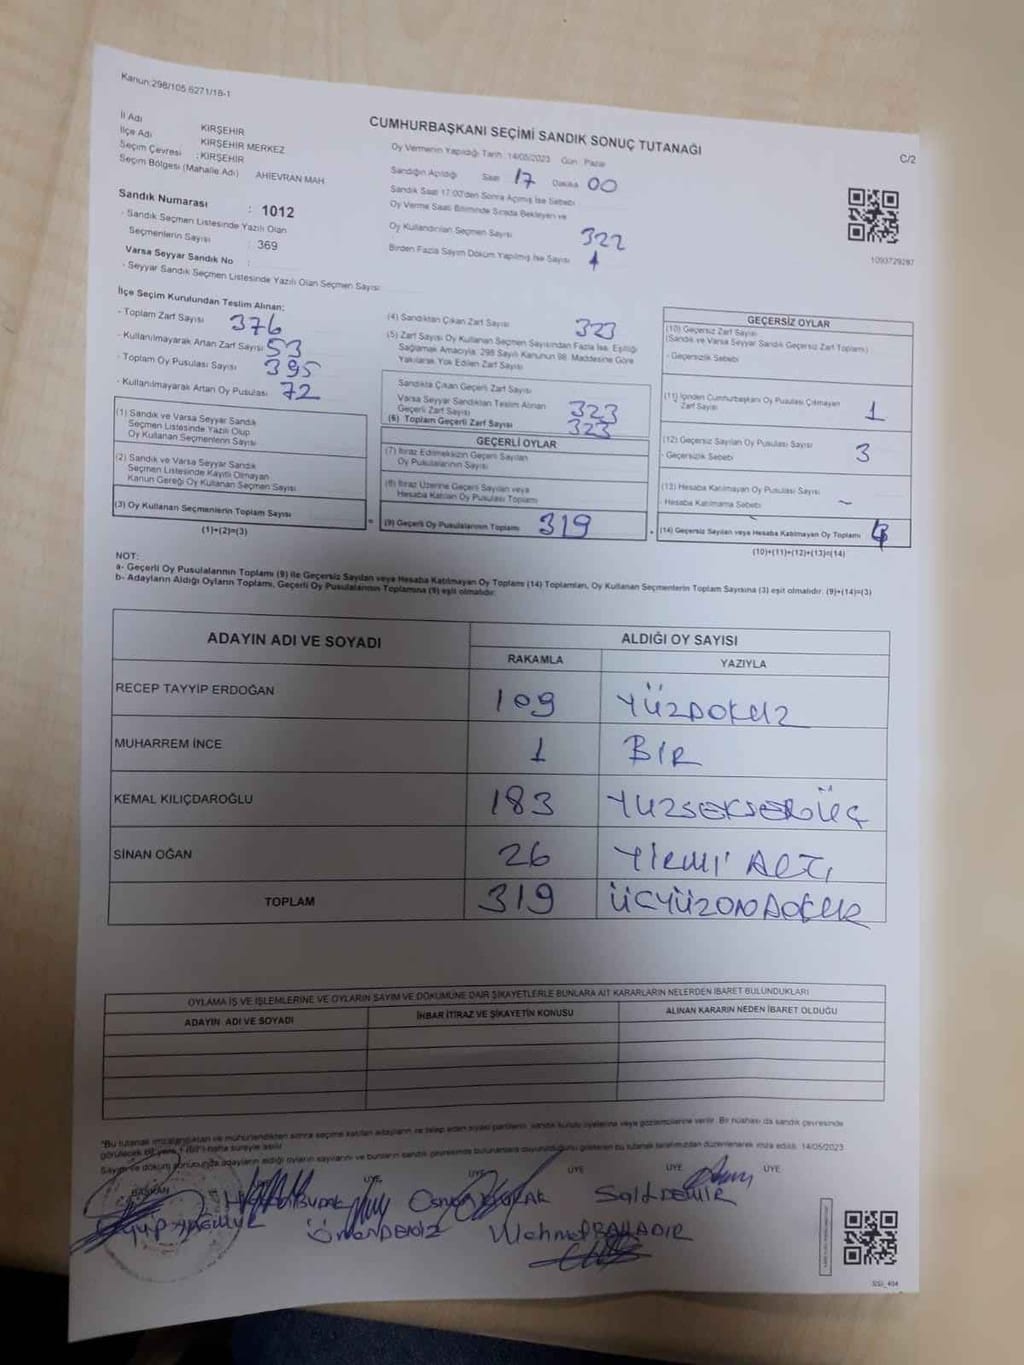 Kanun:298/105.6271/18-1
CUMHURBAŞKANI SEÇİMİ SANDIK SONUÇ TUTANAĞI
C/2
İl Adı KIRŞEHİR
İlçe Adı KIRŞEHİR MERKEZ
Seçim Çevresi : KIRŞEHİR
Seçim Bölgesi (Mahalle Adı) AHİEVRAN MAH.
Sandık Numarası : 1012
- Sandık Seçmen Listesinde Yazılı Olan
Seçmenlerin Sayısı : 369
Varsa Seyyar Sandık No :
- Seyyar Sandık Seçmen Listesinde Yazılı Olan Seçmen Sayısı:
Oy Vermenin Yapıldığı Tarih: 14/05/2023 Gün : Pazar
Sandığın Açıldığı Saat 17 Dakika 00
Sandık Saat 17:00'den Sonra Açılmış İse Sebebi
Oy Verme Saati Bitiminde Sırada Bekleyen ve
Oy Kullandırılan Seçmen Sayısı 322
Birden Fazla Sayım Döküm Yapılmış İse Sayısı 1
1093729287
İlçe Seçim Kurulundan Teslim Alınan:
- Toplam Zarf Sayısı 376
- Kullanılmayarak Artan Zarf Sayısı 53
- Toplam Oy Pusulası Sayısı 395
- Kullanılmayarak Artan Oy Pusulası 72
(1) Sandık ve Varsa Seyyar Sandık
Seçmen Listesinde Yazılı Olup
Oy Kullanan Seçmenlerin Sayısı
(2) Sandık ve Varsa Seyyar Sandık
Seçmen Listesinde Kayıtlı Olmayan
Kanun Gereği Oy Kullanan Seçmen Sayısı
(3) Oy Kullanan Seçmenlerin Toplam Sayısı
(1)+(2)=(3)
(4) Sandıktan Çıkan Zarf Sayısı 323
(5) Zarf Sayısı Oy Kullanan Seçmen Sayısından Fazla İse, Eşitliği
Sağlamak Amacıyla, 298 Sayılı Kanunun 98. Maddesine Göre
Yakılarak Yok Edilen Zarf Sayısı
Sandıkta Çıkan Geçerli Zarf Sayısı
Varsa Seyyar Sandıktan Teslim Alınan
Geçerli Zarf Sayısı 323
(6) Toplam Geçerli Zarf Sayısı 323
GEÇERLİ OYLAR
(7) İtiraz Edilmeksizin Geçerli Sayılan
Oy Pusulalarının Sayısı
(8) İtiraz Üzerine Geçerli Sayılan veya
Hesaba Katılan Oy Pusulası Toplamı
= (9) Geçerli Oy Pusulalarının Toplamı 319
GEÇERSİZ OYLAR
(10) Geçersiz Zarf Sayısı
(Sandık ve Varsa Seyyar Sandık Geçersiz Zarf Toplamı)
- Geçersizlik Sebebi
(11) İçinden Cumhurbaşkanı Oy Pusulası Çıkmayan
Zarf Sayısı 1
(12) Geçersiz Sayılan Oy Pusulası Sayısı 3
- Geçersizlik Sebebi
(13) Hesaba Katılmayan Oy Pusulası Sayısı
Hesaba Katılmama Sebebi -
(14) Geçersiz Sayılan veya Hesaba Katılmayan Oy Toplamı
(10)+(11)+(12)+(13)=(14)
NOT:
a- Geçerli Oy Pusulalarının Toplamı (9) ile Geçersiz Sayılan veya Hesaba Katılmayan Oy Toplamı (14) Toplamları, Oy Kullanan Seçmenlerin Toplam Sayısına (3) eşit olmalıdır. (9)+(14)=(3)
b- Adayların Aldığı Oyların Toplamı, Geçerli Oy Pusulalarının Toplamına (9) eşit olmalıdır.
ADAYIN ADI VE SOYADI ALDIĞI OY SAYISI
RAKAMLA YAZIYLA
RECEP TAYYİP ERDOĞAN 109 YÜZDOKUZ
MUHARREM İNCE 1 BİR
KEMAL KILIÇDAROĞLU 183 YÜZSEKSENÜÇ
SİNAN OĞAN 26 YİRMİ ALTI
TOPLAM 319 ÜÇYÜZONDOKUZ
OYLAMA İŞ VE İŞLEMLERİNE VE OYLARIN SAYIM VE DÖKÜMÜNE DAİR ŞİKAYETLERLE BUNLARA AİT KARARLARIN NELERDEN İBARET BULUNDUKLARI
ADAYIN ADI VE SOYADI İHBAR İTİRAZ VE ŞİKAYETİN KONUSU ALINAN KARARIN NEDEN İBARET OLDUĞU
*Bu tutanak imzalandıktan ve mühürlendikten sonra seçime katılan adayların ve talep eden siyasi partilerin, sandık kurulu üyelerine veya gözlemcilerine verilir. Bir nüshası da sandık çevresinde
Sayım ve döküm sonucunda adayların aldığı oyların sayılarını ve bunların sandık çevresinde bulunanlara duyurulduğunu gösteren bu tutanak tarafımızdan düzenlenerek imza edildi. 14/05/2023
BAŞKAN ÜYE ÜYE ÜYE ÜYE ÜYE
Said DEMİR
Ömer DENİZ Mehmet BAHADIR